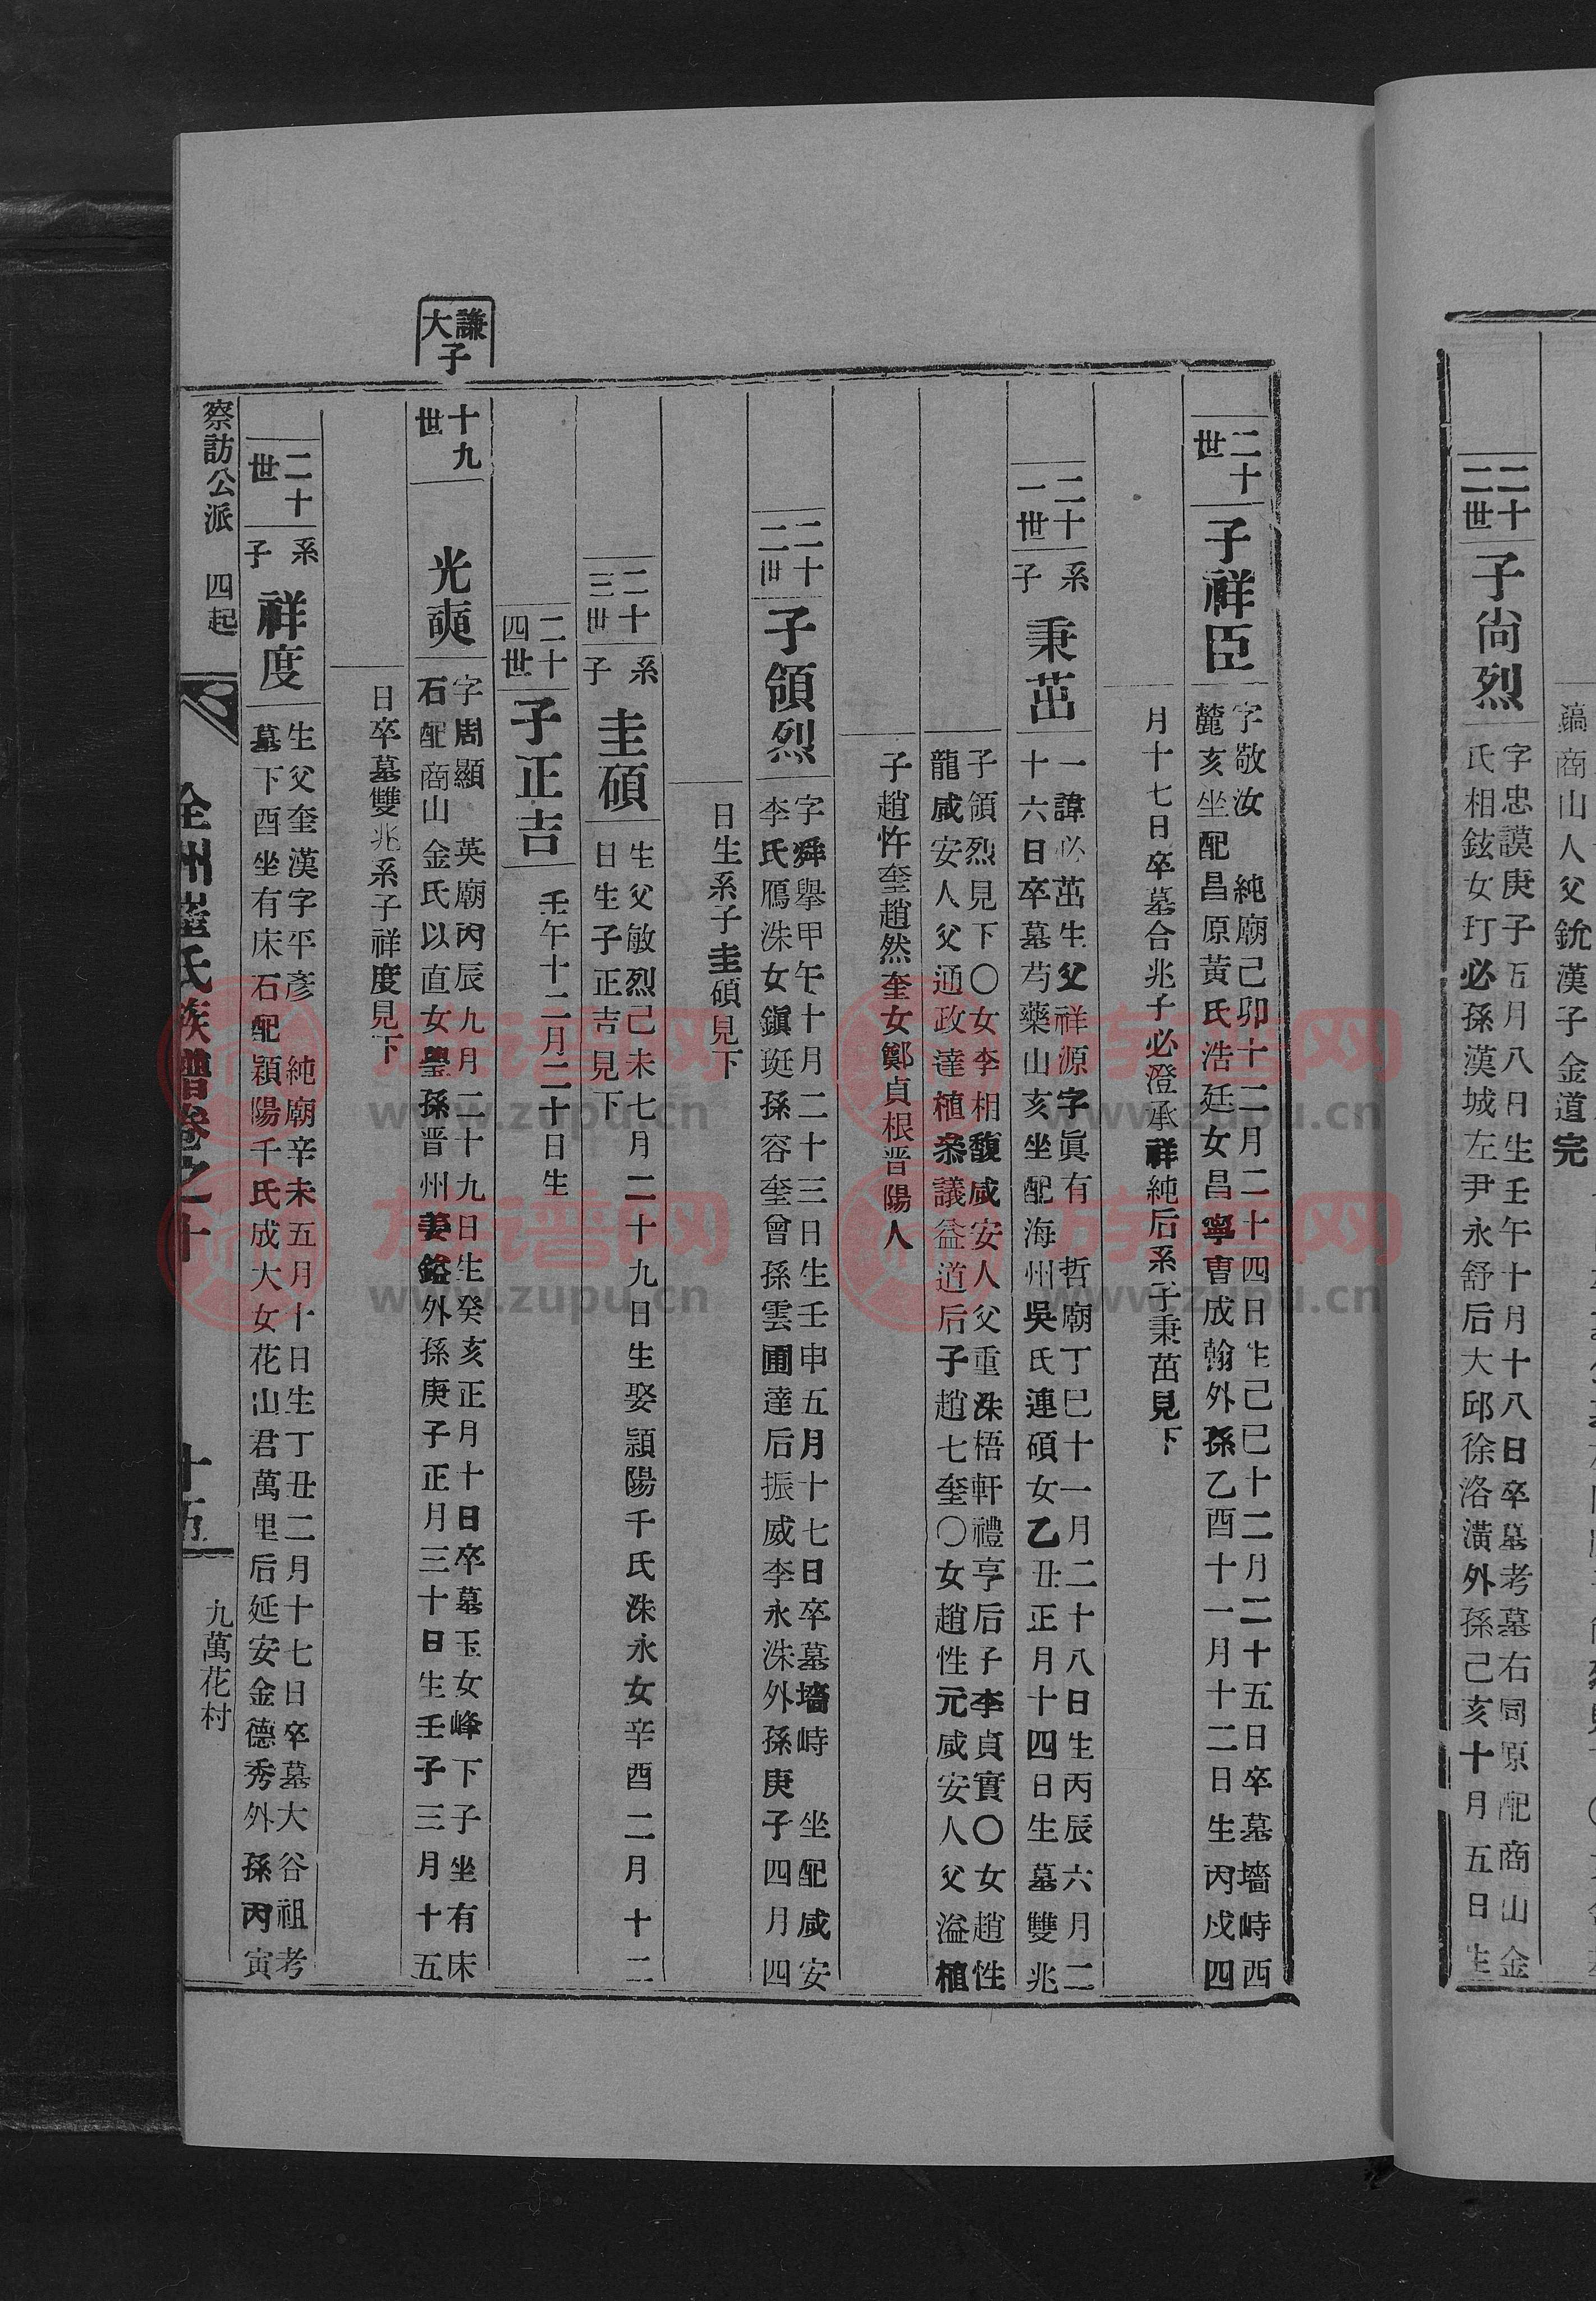 鎬商山人父銃漢子金道完
二十二世
子尙烈
字忠謨庚子五月八日生壬午十月十八日卒墓考墓右同原配商山金
氏相鉉女玎必孫漢城左尹永舒后大邱徐洛潢外孫己亥十月五日生
二十世
子祥臣
字敬汝 純廟己卯十二月二十四日生己巳十二月二十五日卒墓墻峙西
麓亥坐配昌原黃氏浩廷女昌寧曺成翰外孫乙酉十一月十二日生丙戌四
月十七日卒墓合兆子必澄承祥純后系子秉茁見下
二十一世
系子
秉茁
一諱必茁生父祥源字眞有 哲廟丁巳十一月二十八日生丙辰六月二
十六日卒墓芍藥山亥坐配海州吳氏連碩女乙丑正月十四日生墓雙兆
子領烈見下○女李相馥咸安人父重洙梧軒禮亨后子李貞實○女趙性
龍咸安人父通政達植叅議益道后子趙七奎○女趙性元咸安人父溢植
子趙忤奎趙然奎女鄭貞根晋陽人
二十二世
子領烈
字舜擧甲午十月二十三日生壬申五月十七日卒墓墻峙 坐配咸安
李氏鴈洙女鎭珽孫容奎曾孫雲圃達后振威李永洙外孫庚子四月四
日生系子圭碩見下
二十三世
系子
圭碩
生父敏烈己未七月二十九日生娶穎陽千氏洙永女辛酉二月十二
日生子正吉見下
二十四世
子正吉
壬午十二月二十日生
謙大子
十九世
光奭
字周顯 英廟丙辰九月二十九日生癸亥正月十日卒墓玉女峰下子坐有床
石配商山金氏以直女 孫晋州姜鎰外孫庚子正月三十日生壬子三月十五
日卒墓雙兆系子祥度見下
二十世
系子
祥度
生父奎漢字平彥 純廟辛未五月十日生丁丑二月十七日卒墓大谷祖考
墓下酉坐有床石配潁陽千氏成大女花山君萬里后延安金德秀外孫丙寅
察訪公派 四起
全州崔氏族譜卷之十
十五
九萬花村
族谱网
www.zupu.cn
族谱网
www.zupu.cn
族谱网
www.zupu.cn
族谱网
www.zupu.cn